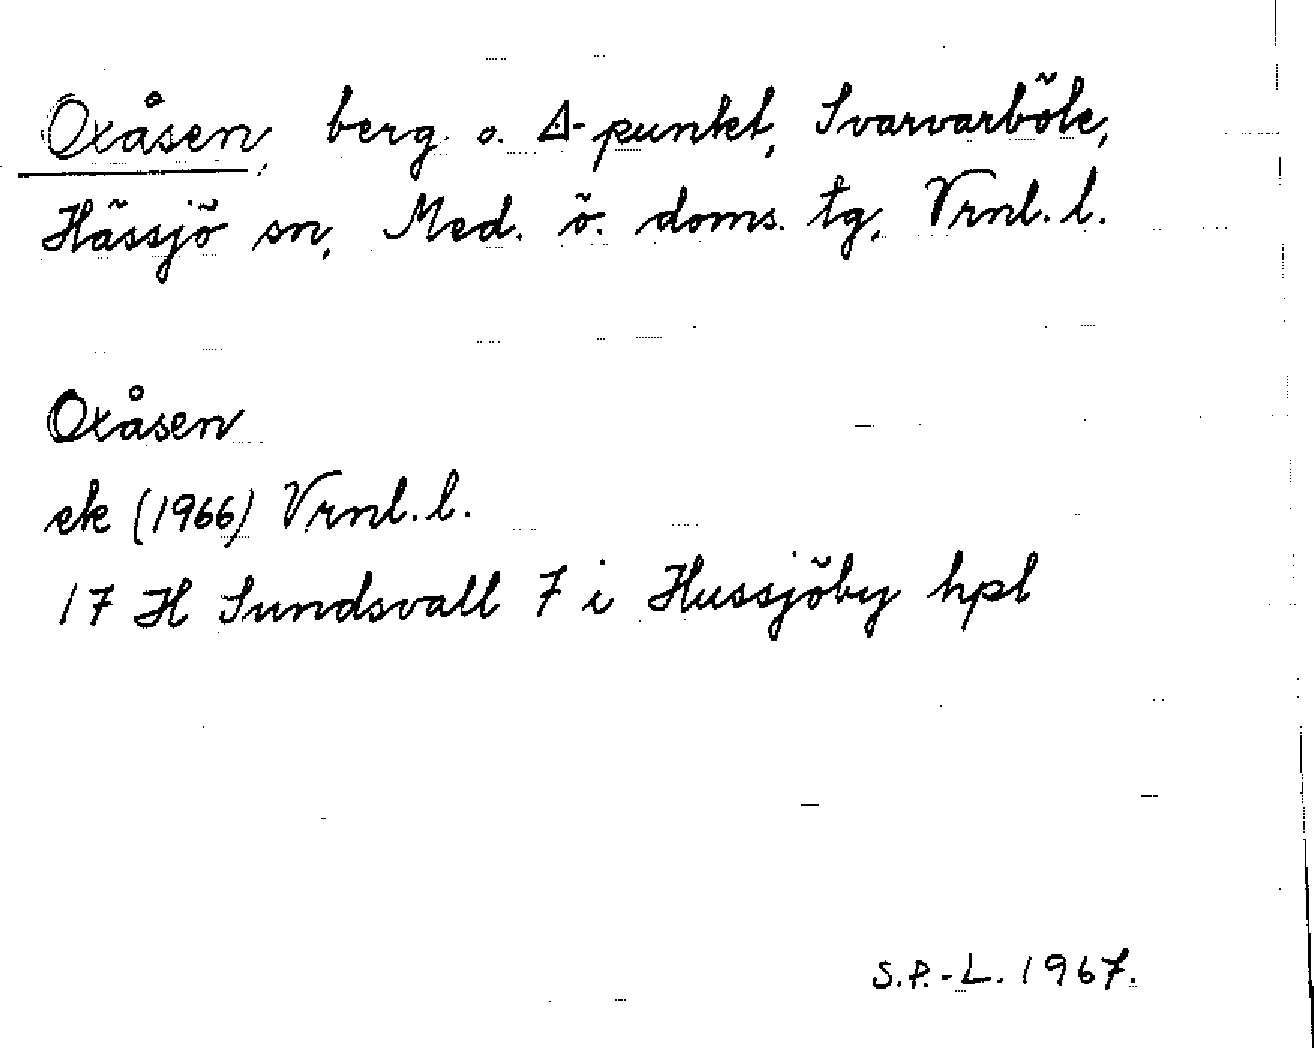 Oxåsen, berg o. Δ-punkt, Svarvarböle,
Hässjö sn, Med. ö. doms. tg, Vrnl. l.
Oxåsen
ek (1966) Vrnl. l.
17 H Sundsvall 7 i Hussjöby hpl
S.P.-L. 1967.